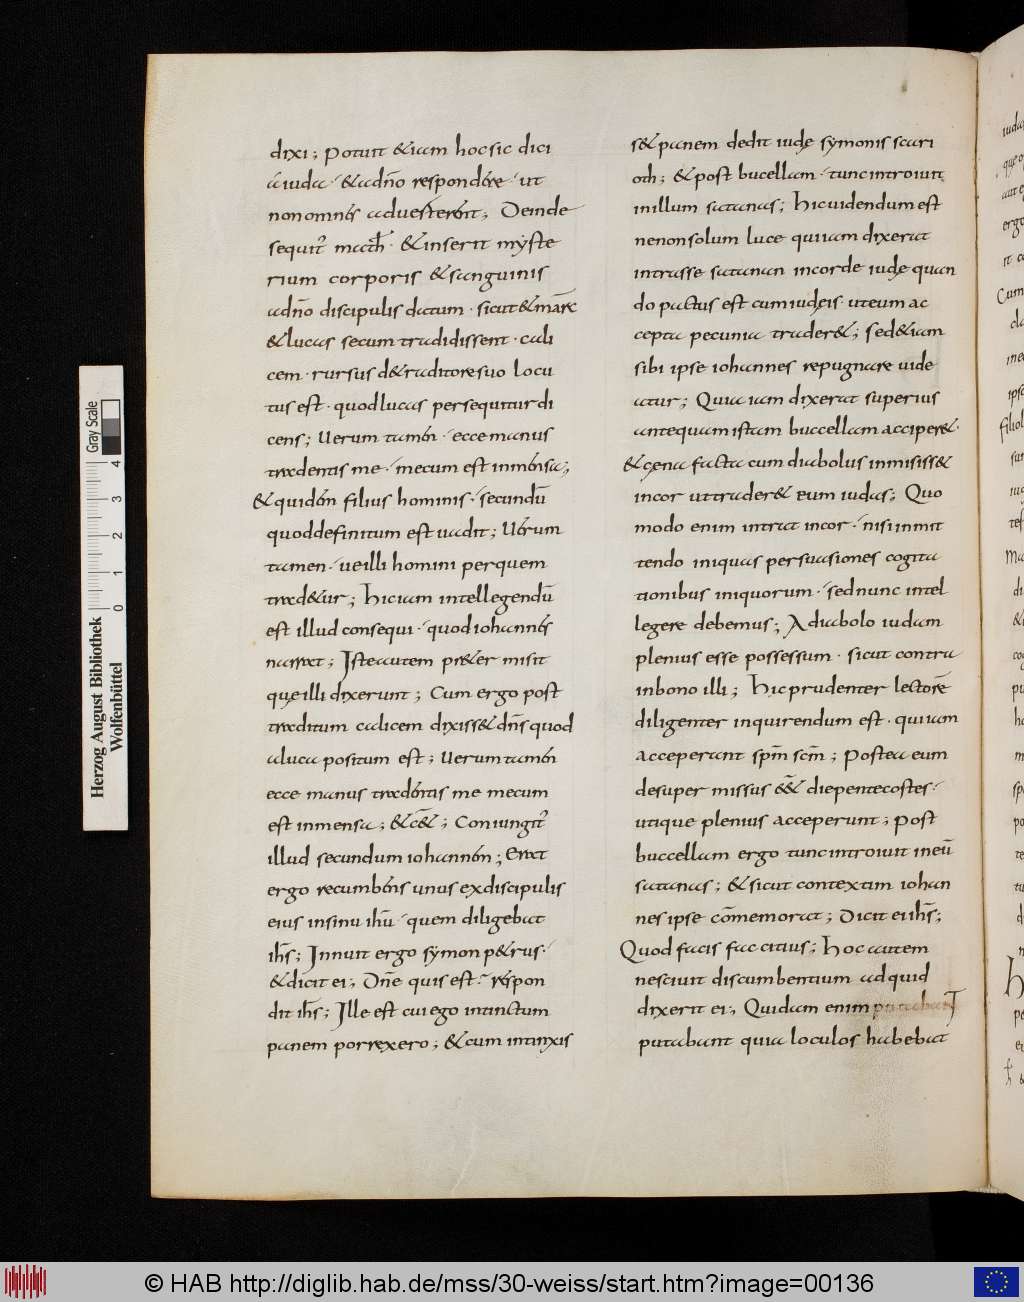 dixi; Potuit &iam hoc sic dici
a iuda · & adño respondere · ut
non omnes aduesterent; Deinde
sequit̃ math̃ · & inserit myste
rium corporis & sanguinis
adño discipulis datum · sicut & marc̃
& lucas secum tradidissent · cali
cem · rursus de traditore suo locu
tus est · quod lucas persequitur di
cens; Uerum tamen · ecce manus
tradentis me · mecum est in mensa;
& quidem filius hominis · secundū
quod definitum est uadit; Uerum
tamen · ue illi homini per quem
trad&ur; Hic iam intellegendū
est illud consequi · quod iohannes
narrat; Iste autem pr&er misit
quę illi dixerunt; Cum ergo post
traditum calicem dixiss& dn̄s quod
a luca positum est; Uerum tamen
ecce manus tradentis me mecum
est in mensa; & c̄&; Coniungit̃
illud secundum iohannen; Erat
ergo recumbens unus ex discipulis
eius in sinu ihū · quem diligebat
ih̄s; Innuit ergo symon p&rus ·
& dicit ei; Dn̄e quis est? respon
dit ih̄s; Ille est cui ego intinctum
panem porrexero; & cum intinxis
s& panem dedit iudę symonis scari
oth; & post bucellam · tunc introiuit
in illum satanas; Hic uidendum est
ne non solum luce qui iam dixerat
intrasse satanan in corde iudę quan
do pactus est cum iudęis · ut eum ac
cepta pecunia trader&; sed &iam
sibi ipse iohannes repugnare uide
atur; Quia iam dixerat superius
antequam istam buccellam acciper& ·
& cęna facta cum diabolus inmisiss&
in cor ut trader& eum iudas; Quo
modo enim intrat in cor · nisi inmit
tendo iniquas persuasiones cogita
tionibus iniquorum · sed nunc intel
legere debemus; A diabolo iudam
plenius esse possessum · sicut contra
in bono illi; Hic prudenter lectorē
diligenter inquirendum est · qui iam
acceperant sp̄m sc̄m; Postea cum
desuper missus ēē& die pentecostes ·
utique plenius acceperunt; Post
buccellam ergo tunc introiuit in eū
satanas; & sicut contextim iohan
nes ipse cōmemorat; Dicit ei ih̄s;
Quod facis fac citius; Hoc autem
nesciuit discumbentium ad quid
dixerit ei; Quidam enim putabant
putabant quia loculos habebat
Herzog August Bibliothek
Wolfenbüttel
0 1 2 3 4
Gray Scale
© HAB http://diglib.hab.de/mss/30-weiss/start.htm?image=00136